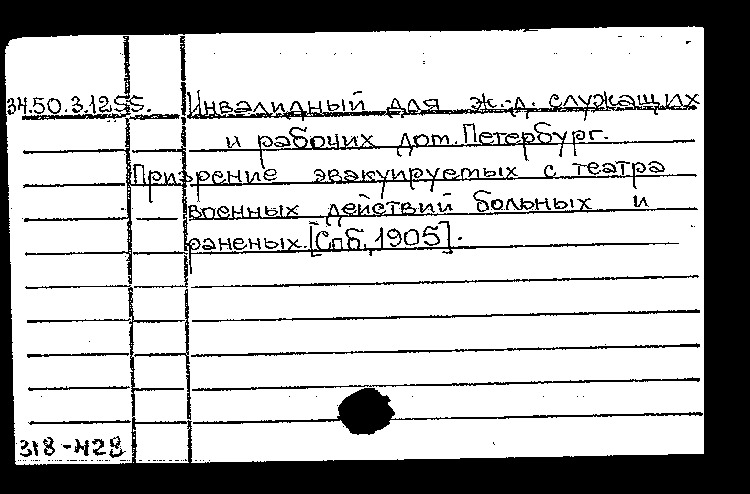 34.50.3.1255. Инвалидный для ж.-д. служащих
и рабочих дом. Петербург.
Призрение эвакуируемых с театра
военных действий больных и
раненых. [Спб, 1905].
318-428